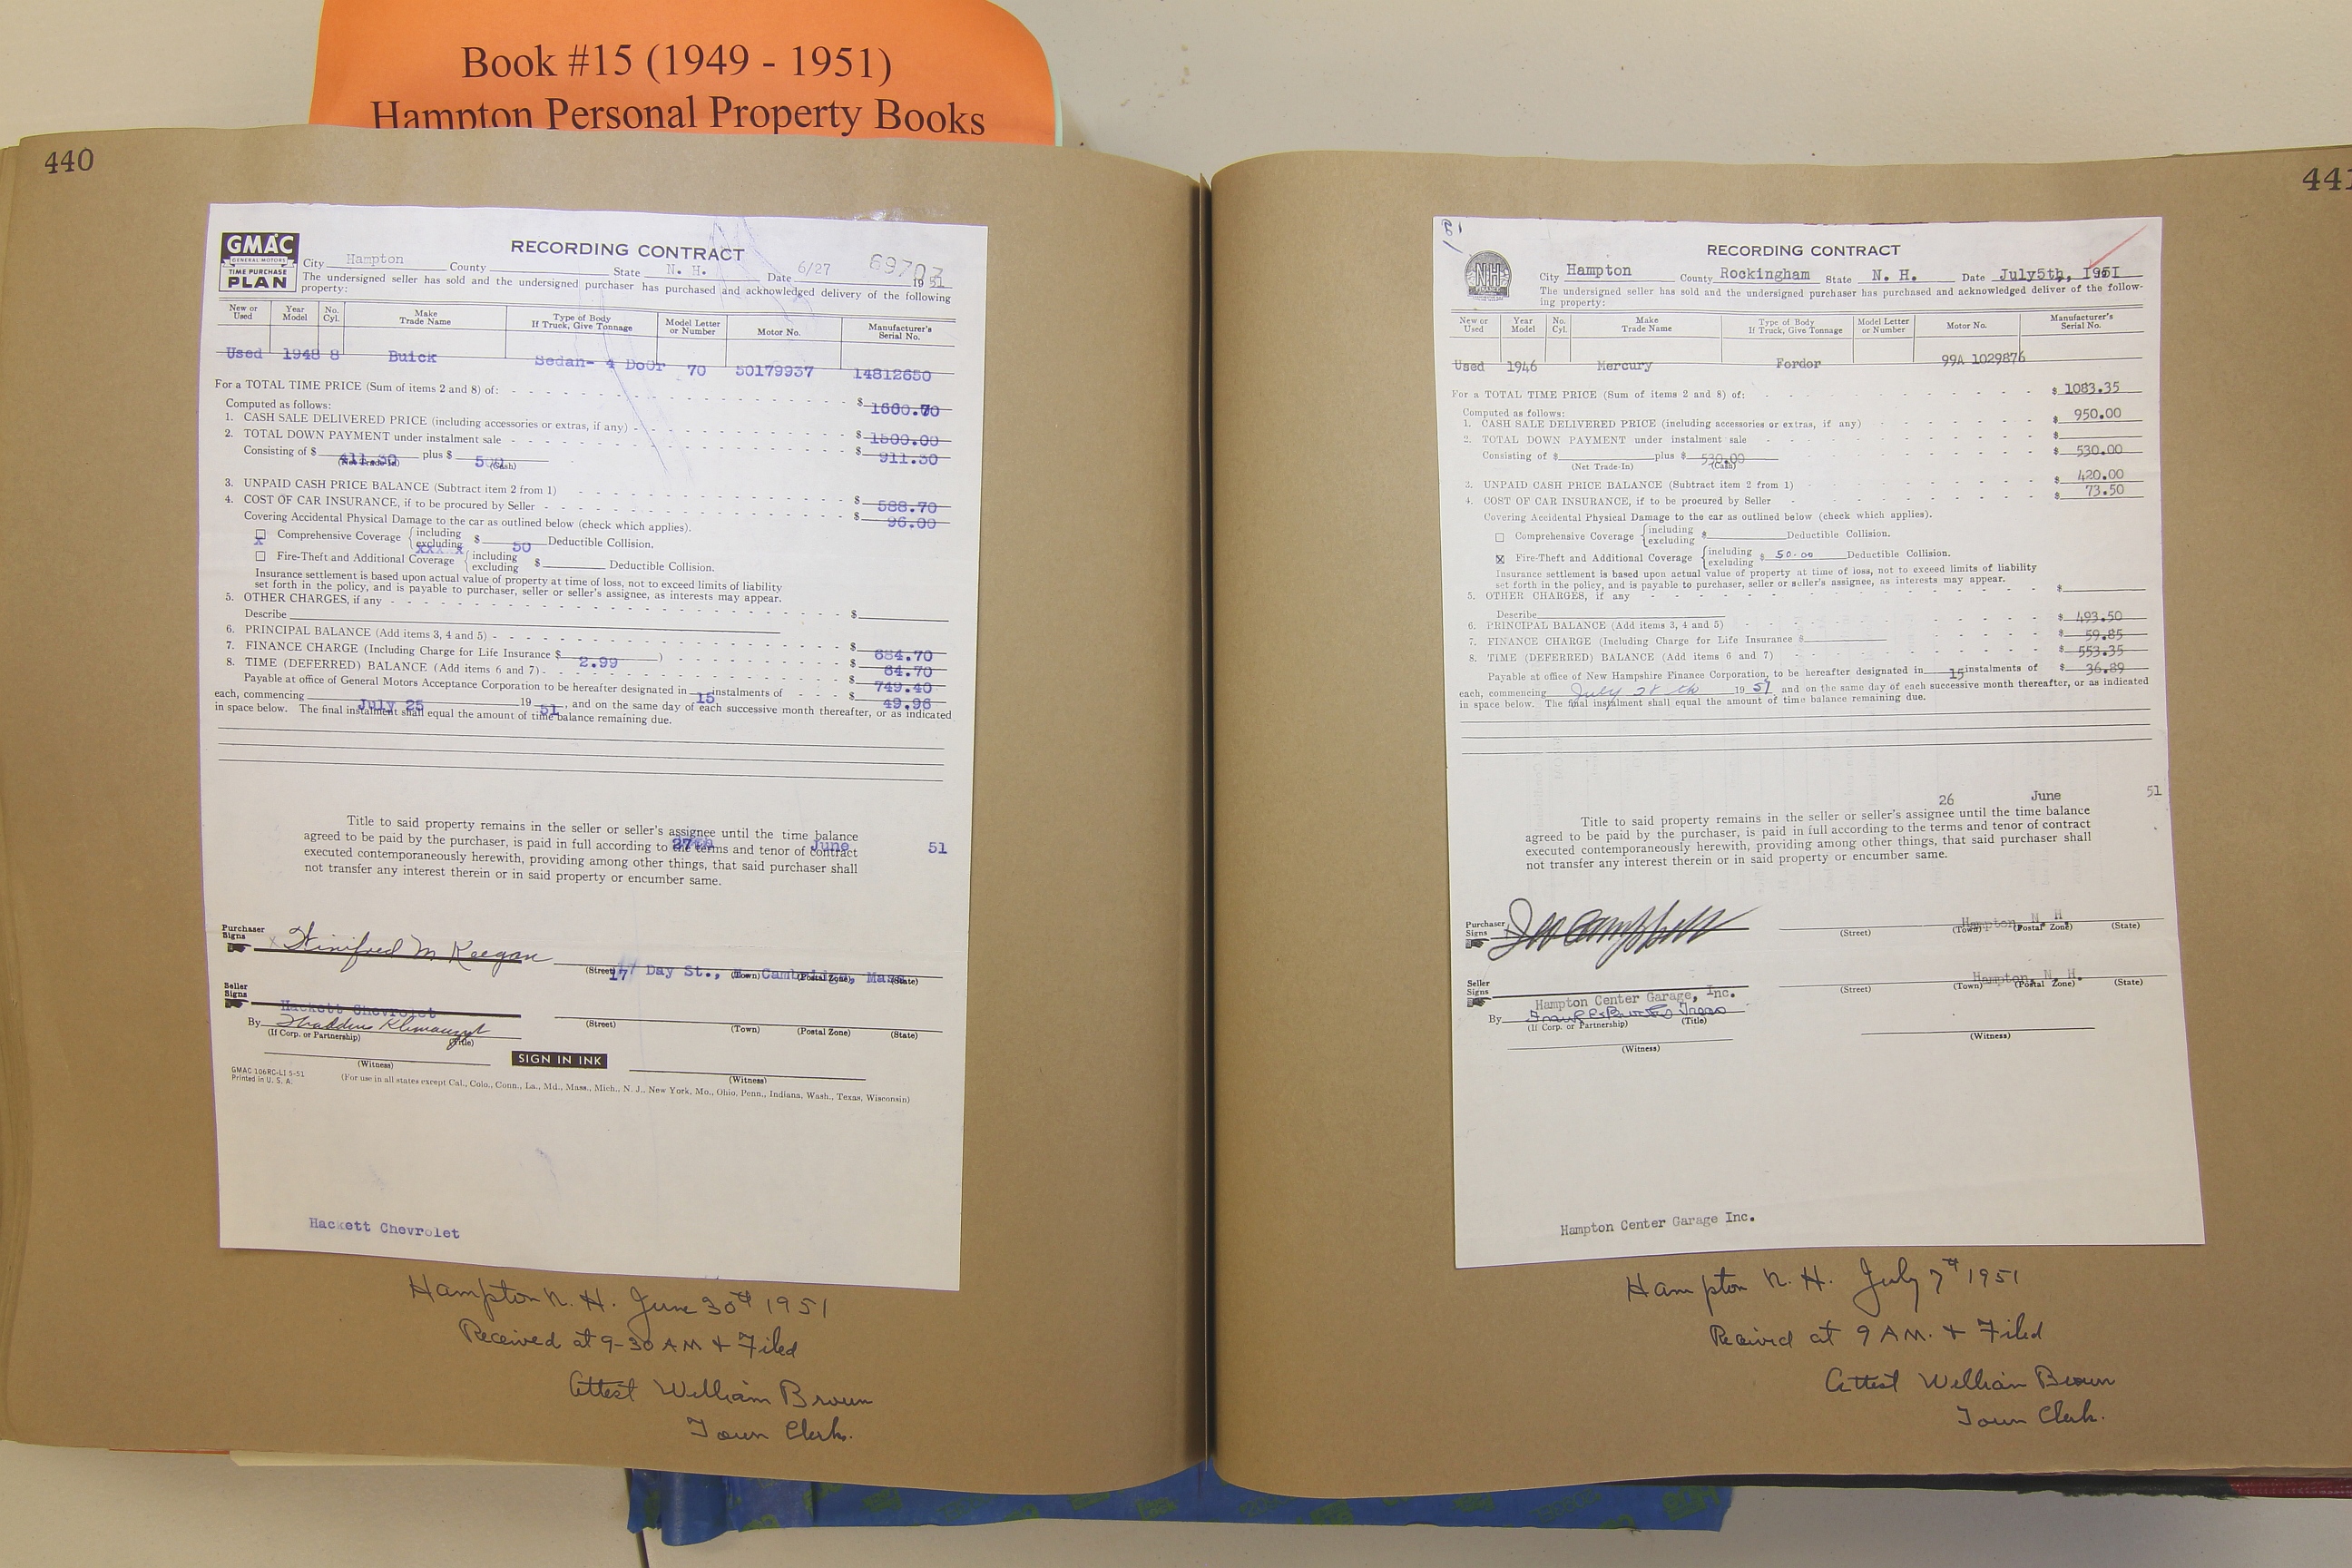 Book #15 (1949 - 1951)
Hampton Personal Property Books
440
GMAC
GENERAL MOTORS
TIME PURCHASE
PLAN
RECORDING CONTRACT
69703
City Hampton County State N. H. Date 6/27 19 51
The undersigned seller has sold and the undersigned purchaser has purchased and acknowledged delivery of the following
property:
New or Used Year Model No. Cyl. Make Trade Name Type of Body If Truck, Give Tonnage Model Letter or Number Motor No. Manufacturer's Serial No.
Used 1948 8 Buick Sedan- 4 Door 70 50179937 14812650
For a TOTAL TIME PRICE (Sum of items 2 and 8) of: $ 1660.70
Computed as follows:
1. CASH SALE DELIVERED PRICE (including accessories or extras, if any) $ 1500.00
2. TOTAL DOWN PAYMENT under instalment sale $ 911.30
Consisting of $ 411.30 (Net Trade-In) plus $ 500 (Cash)
3. UNPAID CASH PRICE BALANCE (Subtract item 2 from 1) $ 588.70
4. COST OF CAR INSURANCE, if to be procured by Seller $ 96.00
Covering Accidental Physical Damage to the car as outlined below (check which applies).
x Comprehensive Coverage {including excluding $ 50 Deductible Collision.
Fire-Theft and Additional Coverage {including excluding $ Deductible Collision.
Insurance settlement is based upon actual value of property at time of loss, not to exceed limits of liability
set forth in the policy, and is payable to purchaser, seller or seller's assignee, as interests may appear.
5. OTHER CHARGES, if any $
Describe
6. PRINCIPAL BALANCE (Add items 3, 4 and 5) $ 684.70
7. FINANCE CHARGE (Including Charge for Life Insurance $ 2.99 ) $ 64.70
8. TIME (DEFERRED) BALANCE (Add items 6 and 7) $ 749.40
Payable at office of General Motors Acceptance Corporation to be hereafter designated in 15 instalments of $ 49.96
each, commencing July 25 19 51, and on the same day of each successive month thereafter, or as indicated
in space below. The final instalment shall equal the amount of time balance remaining due.
Title to said property remains in the seller or seller's assignee until the time balance
agreed to be paid by the purchaser, is paid in full according to the terms and tenor of contract
27th June 51
executed contemporaneously herewith, providing among other things, that said purchaser shall
not transfer any interest therein or in said property or encumber same.
Purchaser Signs x Winifred M Keegan
17 Day St., Cambridge, Mass.
(Street) (Town) (Postal Zone) (State)
Seller Signs Hackett Chevrolet
By Thaddeus
(If Corp. or Partnership) (Title)
(Street) (Town) (Postal Zone) (State)
(Witness) SIGN IN INK (Witness)
GMAC 106RC-LI 5-51
Printed in U. S. A.
(For use in all states except Cal., Colo., Conn., La., Md., Mass., Mich., N. J., New York, Mo., Ohio, Penn., Indiana, Wash., Texas, Wisconsin)
Hackett Chevrolet
Hampton N. H. June 30th 1951
Received at 9-30 AM & Filed
Attest William Brown
Town Clerk.
441
NH
RECORDING CONTRACT
City Hampton County Rockingham State N. H. Date July5th, 1951
The undersigned seller has sold and the undersigned purchaser has purchased and acknowledged deliver of the follow-
ing property:
New or Used Year Model No. Cyl. Make Trade Name Type of Body If Truck, Give Tonnage Model Letter or Number Motor No. Manufacturer's Serial No.
Used 1946 Mercury Fordor 99A 1029876
For a TOTAL TIME PRICE (Sum of items 2 and 8) of: $ 1083.35
Computed as follows:
1. CASH SALE DELIVERED PRICE (including accessories or extras, if any) $ 950.00
2. TOTAL DOWN PAYMENT under instalment sale $
Consisting of $ (Net Trade-In) plus $ 530.00 (Cash) $ 530.00
3. UNPAID CASH PRICE BALANCE (Subtract item 2 from 1) $ 420.00
4. COST OF CAR INSURANCE, if to be procured by Seller $ 73.50
Covering Accidental Physical Damage to the car as outlined below (check which applies).
Comprehensive Coverage {including excluding $ Deductible Collision.
x Fire-Theft and Additional Coverage {including excluding $ 50.00 Deductible Collision.
Insurance settlement is based upon actual value of property at time of loss, not to exceed limits of liability
set forth in the policy, and is payable to purchaser, seller or seller's assignee, as interests may appear.
5. OTHER CHARGES, if any $
Describe
6. PRINCIPAL BALANCE (Add items 3, 4 and 5) $ 493.50
7. FINANCE CHARGE (Including Charge for Life Insurance $ $ 59.85
8. TIME (DEFERRED) BALANCE (Add items 6 and 7) $ 553.35
Payable at office of New Hampshire Finance Corporation, to be hereafter designated in 15 instalments of $ 36.89
each, commencing July 28 th 19 51, and on the same day of each successive month thereafter, or as indicated
in space below. The final instalment shall equal the amount of time balance remaining due.
26 June 51
Title to said property remains in the seller or seller's assignee until the time balance
agreed to be paid by the purchaser, is paid in full according to the terms and tenor of contract
executed contemporaneously herewith, providing among other things, that said purchaser shall
not transfer any interest therein or in said property or encumber same.
Purchaser Signs Campbell
Hampton, N. H.
(Street) (Town) (Postal Zone) (State)
Seller Signs Hampton Center Garage, Inc.
Hampton, N. H.
(Street) (Town) (Postal Zone) (State)
By Treas
(If Corp. or Partnership) (Title)
(Witness) (Witness)
Hampton Center Garage Inc.
Hampton N. H. July 7th 1951
Received at 9 AM. & Filed
Attest William Brown
Town Clerk.